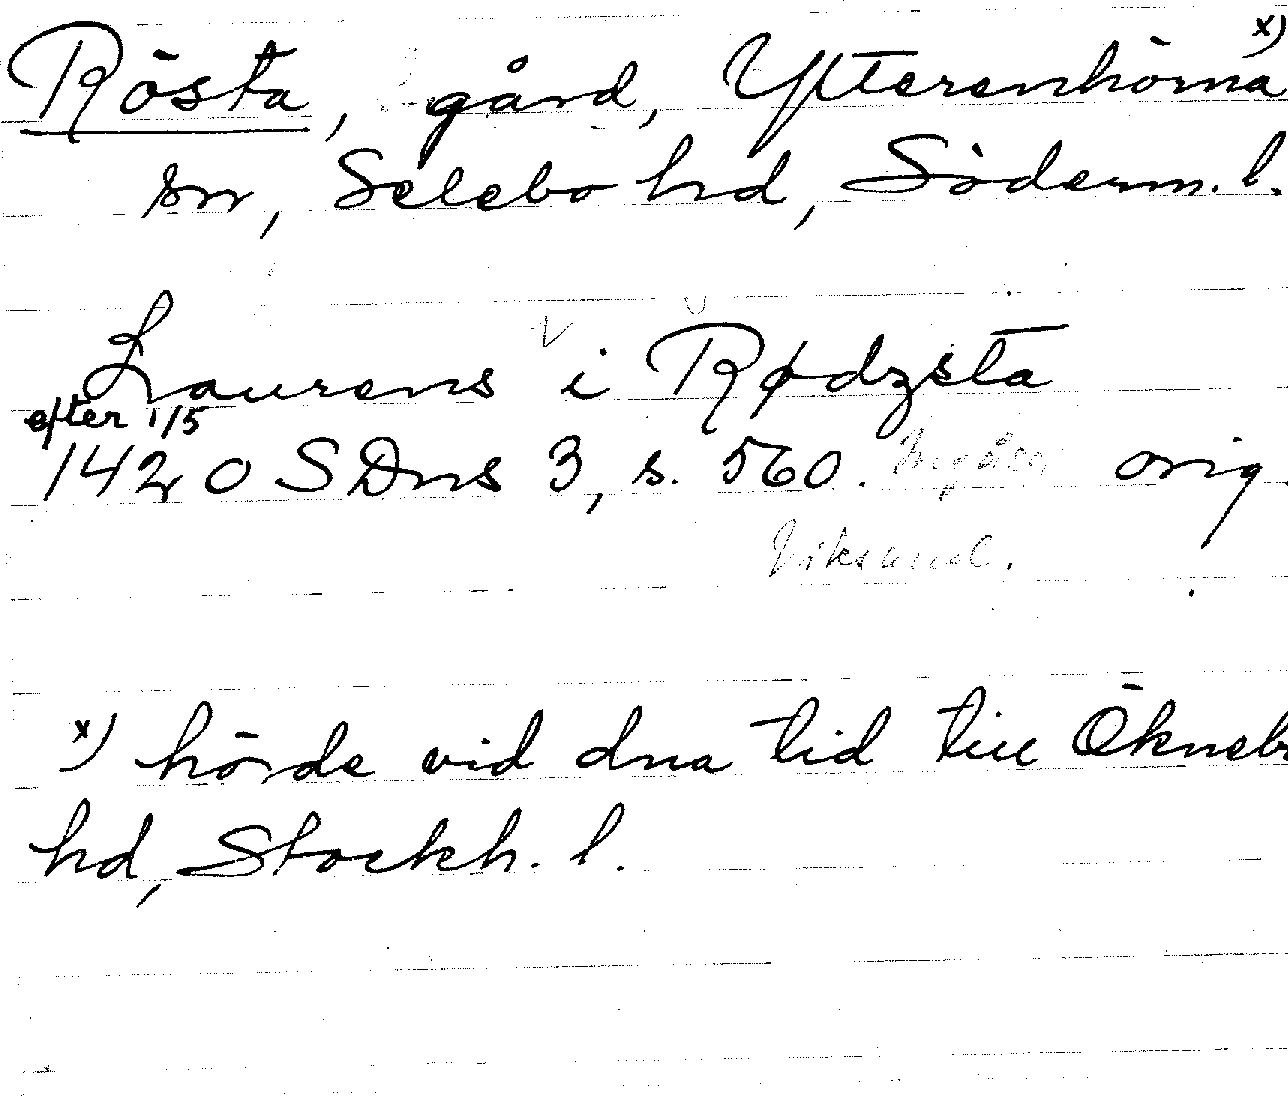 Rösta, gård, Ytterenhörna x)
sn, Selebo hd, Söderm. l.
Laurens i Rødzsta
efter 1/5
1420 SDns 3, s. 560. orig.
x) hörde vid dna tid till Öknebo
hd, Stockh. l.